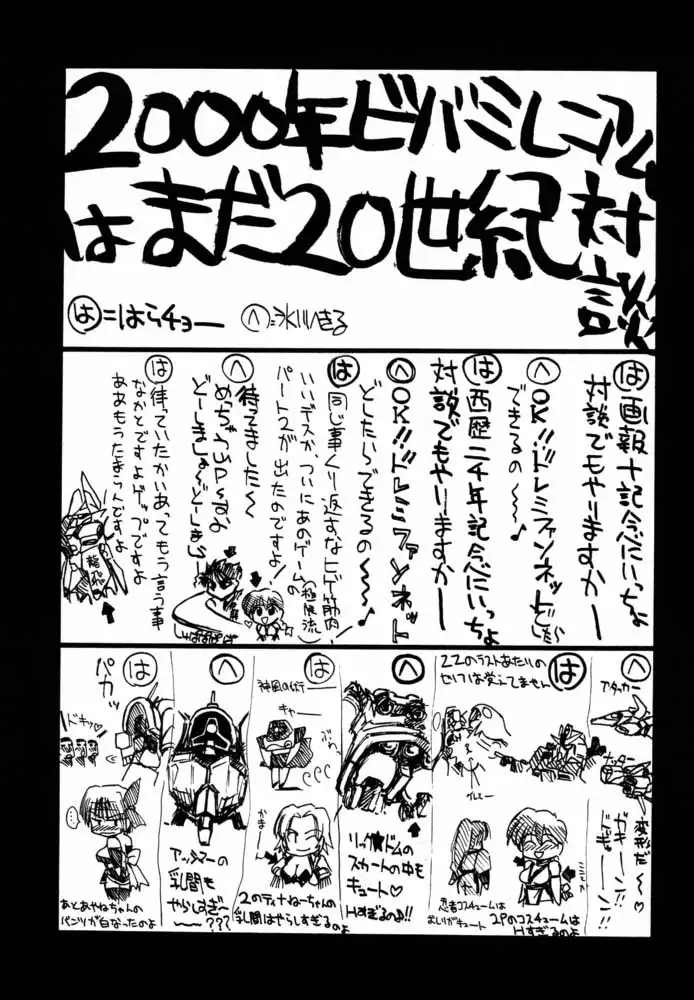 2000年ビバミレニアム
はまだ20世紀対談
は=はらチョー
へ=氷川へきる
は 画報十記念にいっちょ
対談でもやりますかー
へ OK!!ドレミファンネットどしたら
できるの～
は 西歴二千年記念にいっちょ
対談でもやりますかー
へ OK!!ドレミファンネット
どしたらできるの～～♪
は 同じ事くり返すなヒゲ筋肉
(極限流)
いいデスか、ついにあのゲームの
パート2が出たのですよ
へ 待ってました～
めっちゃUPっすよ
どーしましょ～どーしましょ
は 待っていたかいあってもう言う事
なかとですよゲップですよ
ああもうたまらんですよ
龍飛
ぱぱぱぱ
へ
アタッカー
ナッター
変形だ～♡
ガキーン!!
ドギューン!!
は
ZZのラストあたりの
セリフは覚えてません
2Pのコスチュームは
Hすぎるのよ
忍者コスチュームは
おしりがキュート
へ
リック★ドムの
スカートの中も
キュート♡
Hすぎるのよ!!
は
神風の術ー
キャー
ぶわっ
2のティナねーちゃんの
乳間はやらしすぎる
のよ
へ
アッシマーの
乳間も
やらしすぎ
～～???
は
パカッ
ドキッ♡
…
あとあやねちゃんの
パンツが白なったのよ